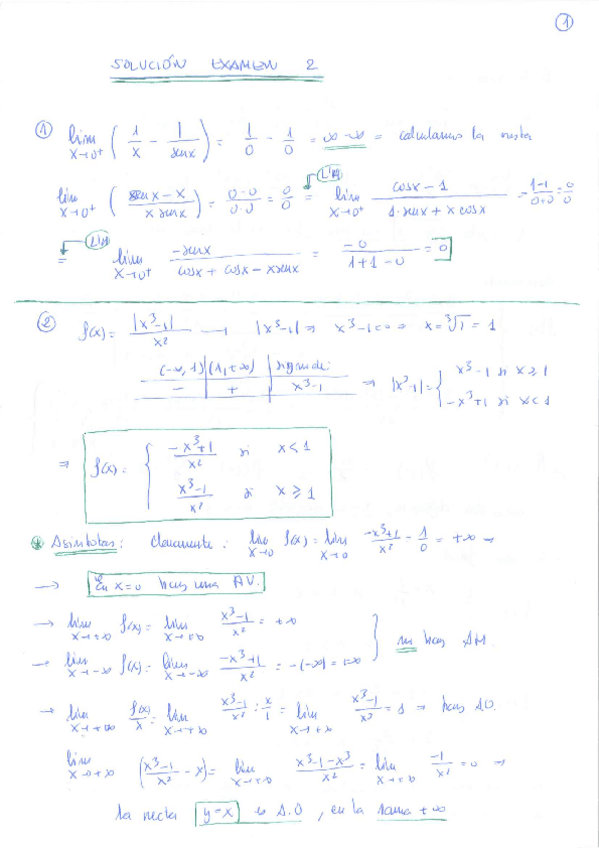 1
SOLUCIÓN EXAMEN 2
① lim x→0⁺ ( 1/x - 1/senx ) = 1/0 - 1/0 = ∞-∞ = calculamos la resta
lim x→0⁺ ( senx-x / x senx ) = 0-0 / 0·0 = 0/0 = (L'H) lim x→0⁺ cosx-1 / 1·senx + x cosx = 1-1 / 0+0 = 0/0
= (L'H) lim x→0⁺ -senx / cosx + cosx - xsenx = -0 / 1+1-0 = 0
② f(x) = |x³-1| / x² → |x³-1| ⇒ x³-1=0 ⇒ x = ∛1 = 1
(-∞,1) | (1,+∞) | signo de:
- | + | x³-1 ⇒ |x³-1| = { x³-1 si x≥1
-x³+1 si x<1
⇒ f(x) = { -x³+1 / x² si x<1
x³-1 / x² si x≥1
* Asíntotas: Claramente: lim x→0 f(x) = lim x→0 -x³+1 / x² = 1/0 = +∞ →
→ En x=0 hay una AV.
→ lim x→+∞ f(x) = lim x→+∞ x³-1 / x² = +∞
→ lim x→-∞ f(x) = lim x→-∞ -x³+1 / x² = -(-∞) = +∞ } no hay AH.
→ lim x→+∞ f(x)/x = lim x→+∞ x³-1 / x² : x/1 = lim x→+∞ x³-1 / x³ = 1 ⇒ hay AO.
lim x→+∞ ( x³-1 / x² - x ) = lim x→+∞ x³-1-x³ / x² = lim x→+∞ -1 / x² = 0 ⇒
la recta y=x es A.O, en la rama +∞